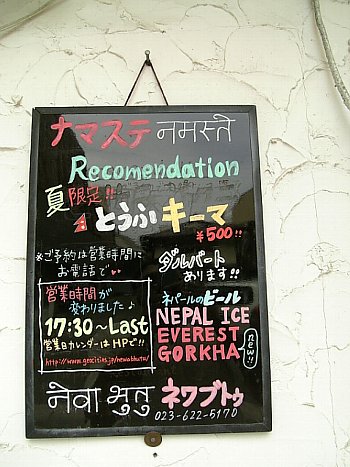 ナマステ नमस्ते
Recomendation
夏限定!!
とうふキーマ
¥500!!
※ご予約は営業時間に
お電話で
ダルバート
あります!!
営業時間が
変わりました♪
17:30~Last
営業日カレンダーはHPで!!
http://www.geocities.jp/newabhutu/
ネパールのビール
NEPAL ICE
EVEREST
GORKHA NEW!!
नेवा भुतु ネワブトゥ
023-622-5170